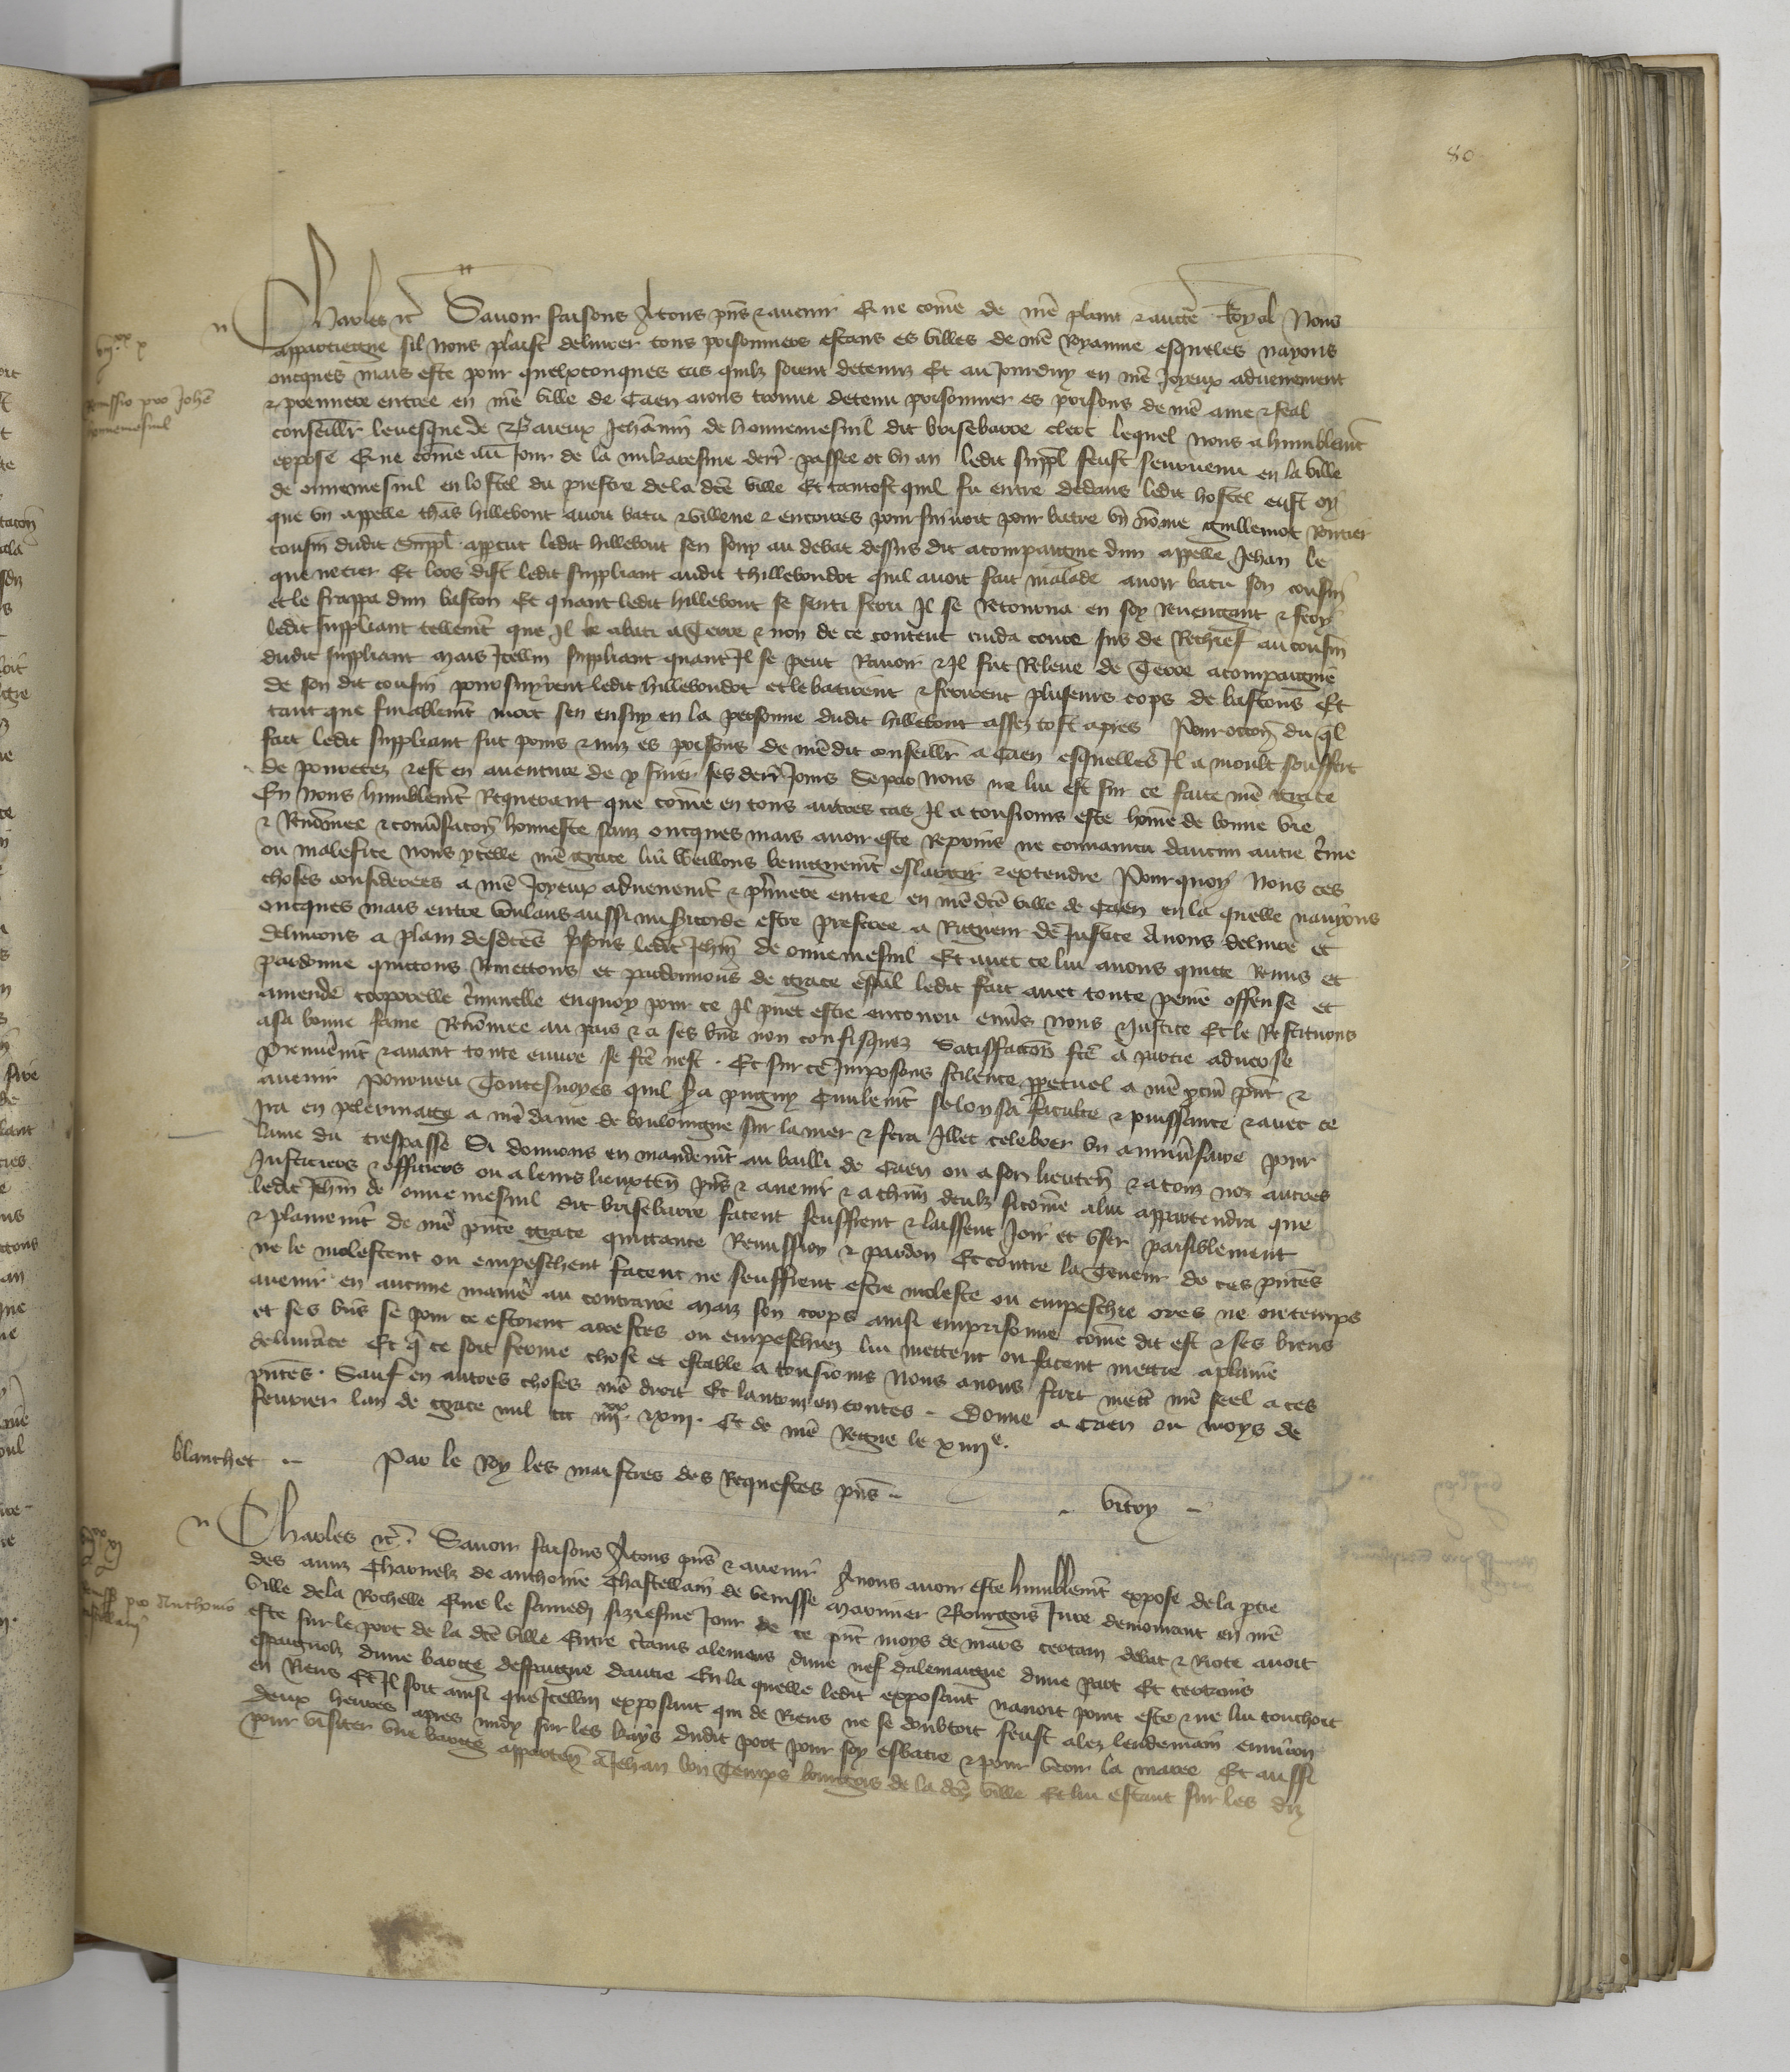 80
Charles etc. Savoir faisons A tous pns et avenir Que come de nre plaint et aucte Royal Nous
appartiegne sil nous plaist delivrer tous prisonniers estans es villes de nre Royaume esqueles nayons
oncques mais este pour quelxconques cas quilz soient detenuz Et au Jourduy en nre Joyeux advenement
et premiere entree en nre ville de Caen aions trouve detenu prisonnier es prisons de nre ame et feal
conseillr levesque de Baieux Jehannin de honnemesnil dit brisebarre clerc lequel nous a humblemt
expose Que come au Jour de la mikaresme derr passee ot un an ledit suppl feust seurvenu en la ville
de onnemesnil en lostel du prestre de la dce ville Et tantost quil fu entre dedans ledit hostel eust oy
que un appelle thas hillebout avoit batu et villene et encores poursuivoit pour batre un nome guillemot
cousin dudit Suppl apperut ledit hillebout sen souy au debat dessus dit acompaigne dun appelle Jehan le
quenetier Et lors dist ledit suppliant audit thilleboudot quil avoit fait malade avoir batu son cousin
et le frappa dun baston Et quant ledit hillebout se senti feru Il se Retourna en soy Revengant et frey
ledit suppliant tellemt que Il le abati a Terre et non de ce content cuida coure sus de Rechief au cousin
dudit suppliant mais Icellui suppliant quant Il se peut Ravoir et Il fut Releve de Terre acompaigne
de son dit cousin poursuyvirent ledit hilleboudot et le batirent et ferirent pluseurs cops de bastons Et
tant que finablemt mort sen ensuy en la personne dudit hillebout assez tost apres Pour occon du ql
fait ledit suppliant fut prins et mis es prisons de nre dit conseillr a Caen esquelles Il a moult souffert
de povretez et est en aventure de y finir ses derr Jours Se par nous ne lui est sur ce faite nre grace
En nous humblemt Requerant que come en tous autres cas Il a tousiours este home de bonne vie
et Renomee et conversacon honneste sanz oncques mais avoir este Reprins ne convaincu daucun autre crime
ou malefice nous ycelle nre grace lui veillons benignemt eslargir et extendre Pourquoy Nous ces
choses considerees a nre Joyeux advenemt et pmiere entree en nre dce ville de Caen en la quelle nayons
oncques mais entre voulans aussi misericorde estre preferee a Rigueur de Justice Avons delivre et
delivrons a plain desdces prisons ledit Jehan de onnemesnil Et avec ce lui avons quicte Remis et
pardonne quictons Remettons et pardonnons de grace espal ledit fait avec toute peine offense et
amende corporelle criminelle enquoy pour ce Il puet estre encouru envers nous et Justice Et le Restituons
a sa bonne fame Renomee au pais et a ses bns non confisquez Satisfaccon fce a partie adverse
premieremt et avant toute euvre se fce nest Et sur ce Imposons scilence perpetuel a nre pcur pnt et
avenir Pourveu Toutesvoyes quil sa pugny Civilemt selon sa faculte et puissance et avec ce
Ira en pelerinaige a nre dame de bouloingne sur la mer et fera Illec celebrer un anniversaire pour
lame du trespasse Si donnons en mandemt au bailli de Caen ou a son lieuten et a touz noz autres
Justiciers et officiers ou a leurs lieuxten pns et avenir et a chun deulx sicome a lui appartendra que
ledit Jehan de onnemesnil dit brisebarre facent seuffrent et laissent Joir et user paisiblement
et plainemt de nre pnte grace quittance Remission et pardon Et contre la Teneur de ces pntes
ne le molestent ou empeschent facent ne seuffrent estre moleste ou empeschie ores ne ou temps
avenir en aucune maniere au contraire mais son corps ainsi emprisonne come dit est et ses biens
et ses bns se pour ce estoient arrestes ou empeschiez lui mettent ou facent mettre a plaine
delivrance Et q ce soit ferme chose et estable a tousiours Nous avons fait mett nre seel a ces
pntes Sauf en autres choses nre droit Et lautrui en toutes Donne a Caen ou moys de
fevrier lan de grace mil ccc iiiixx et xiii Et de nre Regne le xiiiie
blanchet Par le Roy les maistres des Requestes pns vitry
Charles etc. Savoir faisons A tous pns et avenir A nous avoir este humblemt expose de la ptie
des amis Charnelz de anthoine Chastellain de Venisse marinier et Bourgois Jure demourant en nre
ville de la Rochelle Que le samedi siziesme Jour de ce pnt moys de mars certain debat et Riote avoit
este sur le port de la dce ville Entre ctains alemens dune nef dalemaigne dune part Et certains
espaignolz dune barge despaigne dautre En la quelle ledit exposant navoit point este et ne lui touchoit
en Riens Et Il soit ainsi que Icellui exposant qui de Riens ne se doubtoit feust alez lendemain environ
deux heures apres midy sur les kays dudit port pour soy esbatre et pour veoir la maree Et aussi
pour visiter une barge apparten a Jehan bon Temps bourgois de la dce ville Et lui estant sur les diz
viixx x
Remissio pro Johe
honnemesnil
viixx xi
pro Anthonio